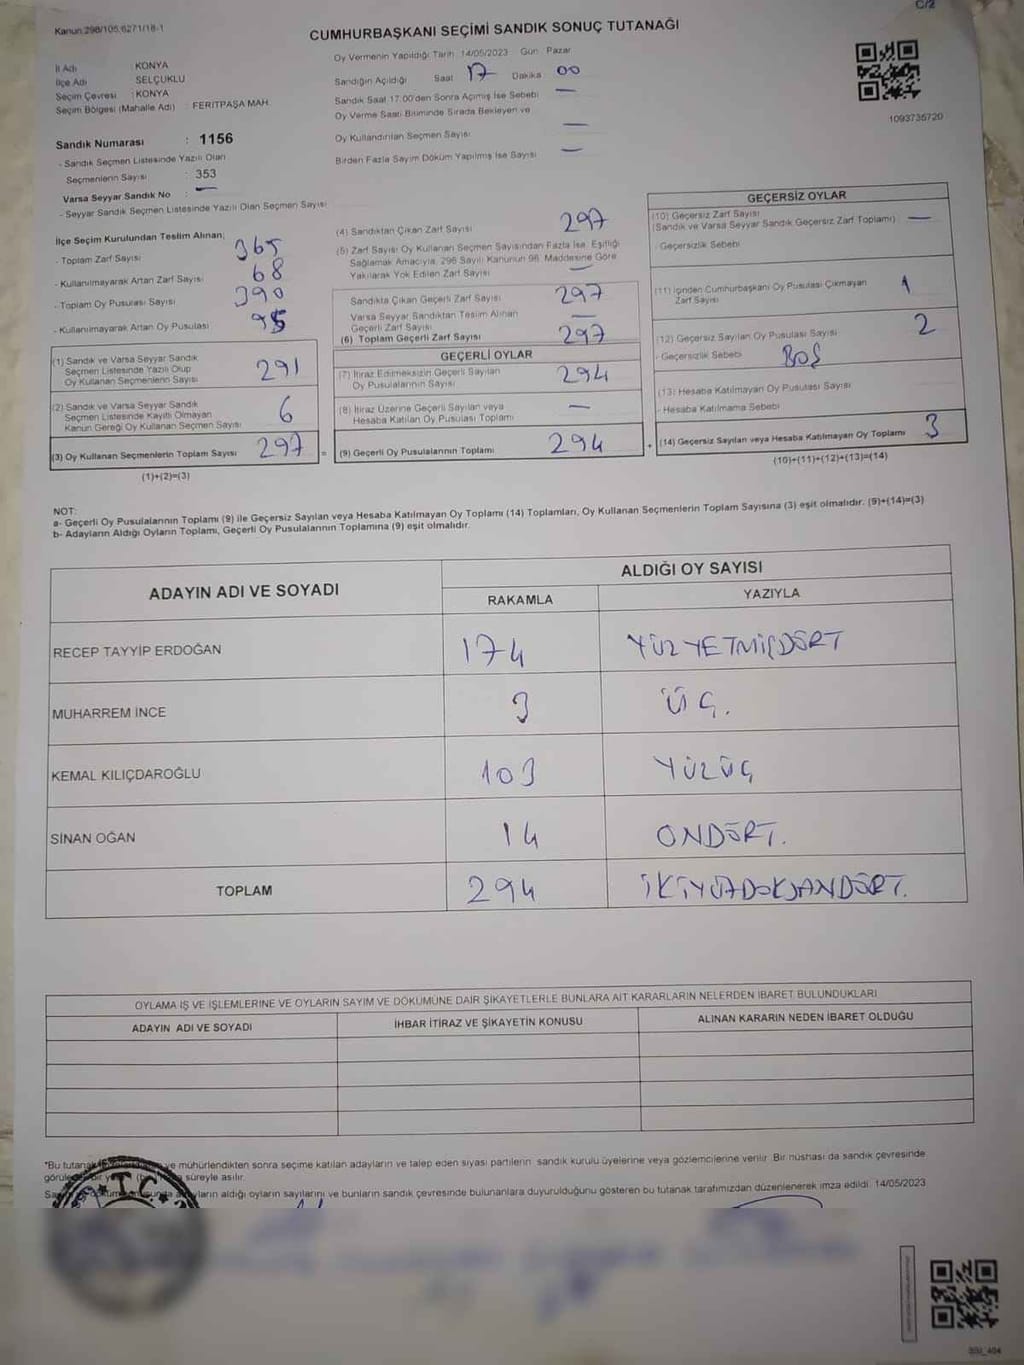 Kanun:298/105,6271/18-1
C/2
CUMHURBAŞKANI SEÇİMİ SANDIK SONUÇ TUTANAĞI
İl Adı : KONYA
İlçe Adı : SELÇUKLU
Seçim Çevresi : KONYA
Seçim Bölgesi (Mahalle Adı) : FERİTPAŞA MAH.
Sandık Numarası : 1156
- Sandık Seçmen Listesinde Yazılı Olan
Seçmenlerin Sayısı : 353
Varsa Seyyar Sandık No : —
- Seyyar Sandık Seçmen Listesinde Yazılı Olan Seçmen Sayısı
Oy Vermenin Yapıldığı Tarih :14/05/2023 Gün : Pazar
Sandığın Açıldığı Saat 17 Dakika 00
Sandık Saat 17:00'den Sonra Açılmış İse Sebebi —
Oy Verme Saati Bitiminde Sırada Bekleyen ve
Oy Kullandırılan Seçmen Sayısı —
Birden Fazla Sayım Döküm Yapılmış İse Sayısı —
1093735720
İlçe Seçim Kurulundan Teslim Alınan;
- Toplam Zarf Sayısı 365
- Kullanılmayarak Artan Zarf Sayısı 68
- Toplam Oy Pusulası Sayısı 390
- Kullanılmayarak Artan Oy Pusulası 95
(1) Sandık ve Varsa Seyyar Sandık
Seçmen Listesinde Yazılı Olup
Oy Kullanan Seçmenlerin Sayısı 291
(2) Sandık ve Varsa Seyyar Sandık
Seçmen Listesinde Kayıtlı Olmayan
Kanun Gereği Oy Kullanan Seçmen Sayısı 6
(3) Oy Kullanan Seçmenlerin Toplam Sayısı 297
(1)+(2)=(3)
(4) Sandıktan Çıkan Zarf Sayısı 297
(5) Zarf Sayısı Oy Kullanan Seçmen Sayısından Fazla İse, Eşitliği
Sağlamak Amacıyla, 298 Sayılı Kanunun 98. Maddesine Göre
Yakılarak Yok Edilen Zarf Sayısı —
Sandıkta Çıkan Geçerli Zarf Sayısı 297
Varsa Seyyar Sandıktan Teslim Alınan
Geçerli Zarf Sayısı —
(6) Toplam Geçerli Zarf Sayısı 297
GEÇERLİ OYLAR
(7) İtiraz Edilmeksizin Geçerli Sayılan
Oy Pusulalarının Sayısı 294
(8) İtiraz Üzerine Geçerli Sayılan veya
Hesaba Katılan Oy Pusulası Toplamı —
= (9) Geçerli Oy Pusulalarının Toplamı 294
GEÇERSİZ OYLAR
(10) Geçersiz Zarf Sayısı
(Sandık ve Varsa Seyyar Sandık Geçersiz Zarf Toplamı) —
- Geçersizlik Sebebi
(11) İçinden Cumhurbaşkanı Oy Pusulası Çıkmayan
Zarf Sayısı 1
(12) Geçersiz Sayılan Oy Pusulası Sayısı 2
- Geçersizlik Sebebi BOŞ
(13) Hesaba Katılmayan Oy Pusulası Sayısı
- Hesaba Katılmama Sebebi
+ (14) Geçersiz Sayılan veya Hesaba Katılmayan Oy Toplamı 3
(10)+(11)+(12)+(13)=(14)
NOT:
a- Geçerli Oy Pusulalarının Toplamı (9) ile Geçersiz Sayılan veya Hesaba Katılmayan Oy Toplamı (14) Toplamları, Oy Kullanan Seçmenlerin Toplam Sayısına (3) eşit olmalıdır. (9)+(14)=(3)
b- Adayların Aldığı Oyların Toplamı, Geçerli Oy Pusulalarının Toplamına (9) eşit olmalıdır.
ADAYIN ADI VE SOYADI
ALDIĞI OY SAYISI
RAKAMLA YAZIYLA
RECEP TAYYİP ERDOĞAN 174 YÜZYETMİŞDÖRT
MUHARREM İNCE 3 ÜÇ.
KEMAL KILIÇDAROĞLU 103 YÜZÜÇ
SİNAN OĞAN 14 ONDÖRT.
TOPLAM 294
OYLAMA İŞ VE İŞLEMLERİNE VE OYLARIN SAYIM VE DÖKÜMÜNE DAİR ŞİKAYETLERLE BUNLARA AİT KARARLARIN NELERDEN İBARET BULUNDUKLARI
ADAYIN ADI VE SOYADI İHBAR İTİRAZ VE ŞİKAYETİN KONUSU ALINAN KARARIN NEDEN İBARET OLDUĞU
*Bu tutanak ve mühürlendikten sonra seçime katılan adayların ve talep eden siyasi partilerin sandık kurulu üyelerine veya gözlemcilerine verilir. Bir nüshası da sandık çevresinde
süreyle asılır.
aldığı oyların sayılarını ve bunların sandık çevresinde bulunanlara duyurulduğunu gösteren bu tutanak tarafımızdan düzenlenerek imza edildi. 14/05/2023
T.C.